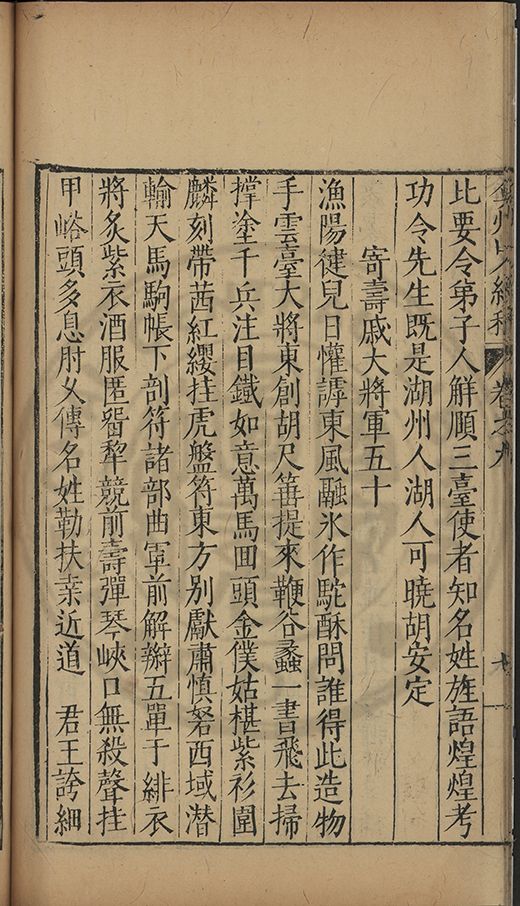 比要令弟子人解頤三臺使者知名姓旌語煌煌考
功令先生既是湖州人湖人可曉胡安定
寄壽戚大將軍五十
漁陽健兒日懽謼東風融氷作駝酥問誰得此造物
手雲臺大將東創胡尺箠提來鞭谷蠡一書飛去掃
撑塗千兵注目鐵如意萬馬囬頭金僕姑椹紫衫圍
麟刻帶茜紅纓挂虎盤符東方別獻肅慎砮西域潜
輸天馬駒帳下剖符諸部曲軍前解辮五單于緋衣
將炙紫衣酒服匿㽞犂競前壽彈琴峽口無殺聲挂
甲峪頭多息肘父傳名姓勒扶桒近道 君王誇細